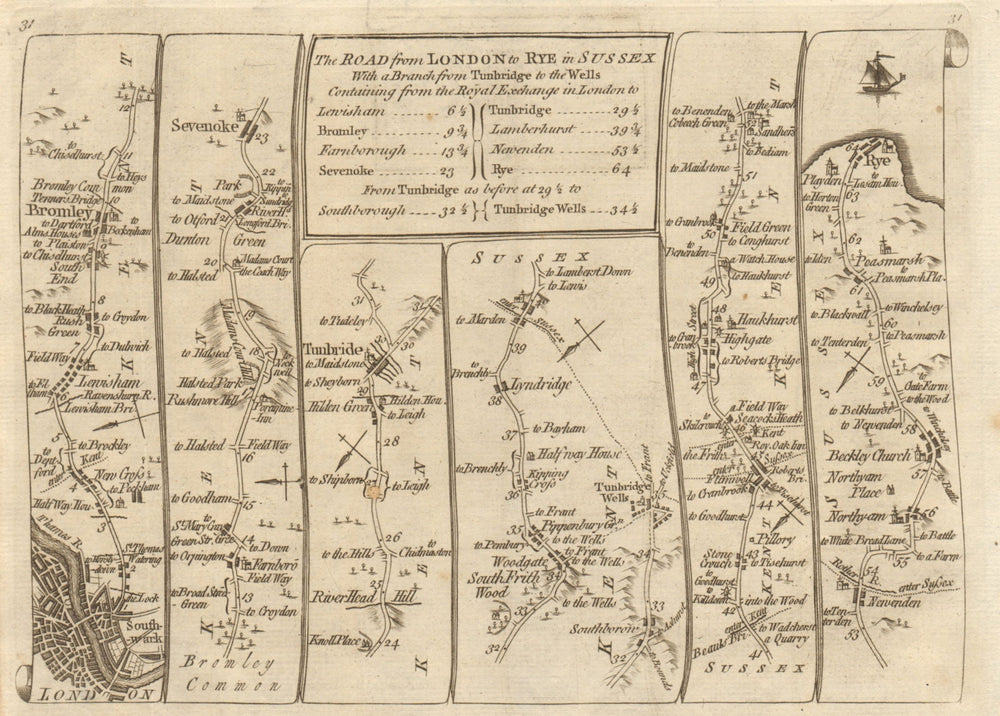 31
31
The ROAD from LONDON to RYE in SUSSEX
With a Branch from Tunbridge to the Wells
Containing from the Royal Exchange in London to
Lewisham ...... 6½
Bromley ...... 9¾
Farnborough ...... 13¾
Sevenoke ...... 23
Tunbridge ...... 29½
Lamberhurst ...... 39¾
Newenden ...... 53½
Rye ...... 64
From Tunbridge as before at 29½ to
Southborough .... 32½
Tunbridge Wells ... 34½
KENT
12
to Chiselhurst
11
to Heys
Bromley Common
Penners Bridge
10
Bromley
to Dartford
Alms Houses
Beckenham
to Plaiston
9
to Chiselhurst
South End
8
to Black Heath
Rush Green
to Croydon
7
to Dulwich
Field Way
to Eltham
Lewisham
6
Ravensburn R.
Lewisham Bri.
5
to Brockley
to Deptford
Kent
enter
4
New Cross
to Peckham
Half Way House
3
Thames R.
St. Thomas Watering
2
the Lock
Southwark
LONDON
KENT
Sevenoke
23
22
Park
to Kippin
to Maidstone
Sundridge
River H.
to Otford
21
Longford Bri.
Dunton Green
20
Madams Court
the Coach Way
to Halsted
19
Madams Court Hill
to Halsted
18
Halsted Park
17
Rushmore Hill
Porcupine Inn
to Halsted
Field Way
16
to Goodham
15
to St. Mary Cray
Green Str. Gre.
14
to Down
to Orpington
Farnboro
Field Way
to Broad Street Green
13
to Croydon
Bromley Common
KENT
31
31
to Tudeley
30
Tunbridge
to Maidstone
to Sheyborn
29
Hilden Green
Hilden Hou.
to Leigh
28
to Shipborn
to Leigh
26
to the Hills
to Chidingston
25
River Head Hill
Knoll Place
24
SUSSEX
KENT
to Lamberst Down
to Lewis
Sussex
to Marden
39
to Brenchly
Lyndridge
38
37
to Barham
Half way House
to Brenchly
Kipping Cross
36
to Frant
Tunbridge Wells
35
Pippenbury Gn.
to the Wells
to Pembury
to Frant
Woodgate
to the Wells
34
South Frith Wood
to the Wells
33
32
to Frant
34
33
Southborow
to Ashurst
32
to Bounds
KENT
KENT
to Benenden
to the Marsh
Cobeech Green
52
Sandhers
to Bediam
to Maidstone
51
to Cranbrook
50
Field Green
to Conghurst
to Benenden
a Watch House
49
to Haukhurst
48
Haukhurst
to Cranbrook
Highgate
High Street
to Roberts Bridge
47
a Field Way
Seacocks Heath
to Skilcrouch
Kent
enter
to the Frith
Roy. Oak Inn
Sussex
enter
Flimwell
Roberts Bri.
to Cranbrook
to Ticehurst
44
to Goodhurst
Pillory
Stone Crouch
43
to Tisehurst
to Goodhurst
to Killdown
42
into the Wood
Kent
enter
to Wadeherst
Beauls Bri.
a Quarry
41
SUSSEX
SUSSEX
64
Rye
Playden
to Lasam Hou.
to Horton Green
63
62
to Iden
Peasmarsh
to Peasmarsh Pla.
61
to Blackwall
to Winchelsey
60
to Peasmarsh
to Tenterden
59
to Oate Farm
to the Wood
to Belkhurst
58
to Newenden
to Winchelsey
Beckley Church
57
Northyam Place
to Battle
Northyam
56
to White Bread Lane
to Battle
55
to a Farm
54
Rother R.
enter Sussex
Newenden
to Tenterden
53